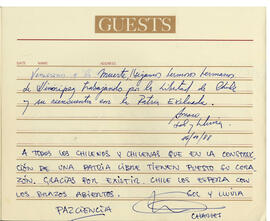 GUESTS
DATE NAME ADDRESS
Venceremos a la Muerte! Sigamos hermosos hermanos
de Winnipeg trabajando por la libertad de Chile
y su reencuentro con la Patria Exiliada.
Amaro
Sol y Lluvia
/88
A TODOS LOS CHILENOS Y CHILENAS QUE EN LA CONSTRUC-
CIÓN DE UNA PATRIA LIBRE TIENEN PUESTO SU CORA-
ZÓN. GRACIAS POR EXISTIR. CHILE LOS ESPERA CON
LOS BRAZOS ABIERTOS.
SOL Y LLUVIA
PAZCIENCIA
CHARLES